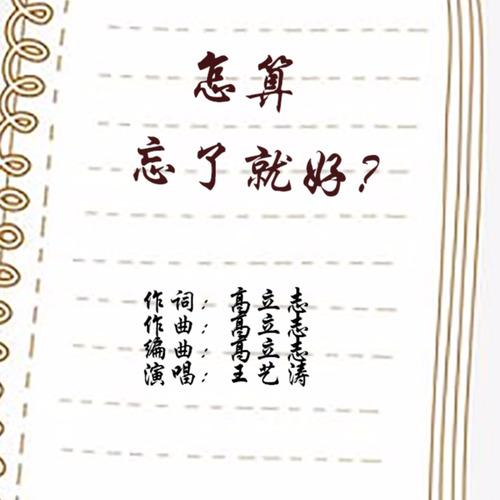 怎算
忘了就好？
作词：高立志
作曲：高立志
编曲：高立志
演唱：王艺涛